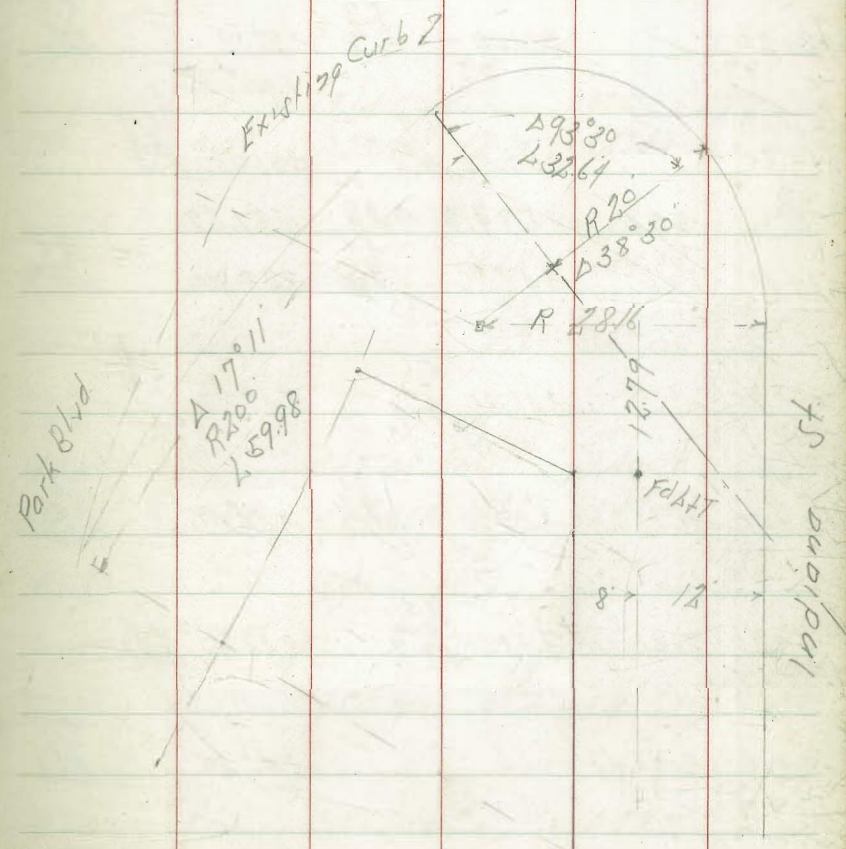 Existing Curb
Δ93°30
L32.64
R 20
Δ38°30
R 28.16
12.79
Δ 17°11
R200
L 59.98
Park Blvd
Fd L&T
8
12
Indiana St